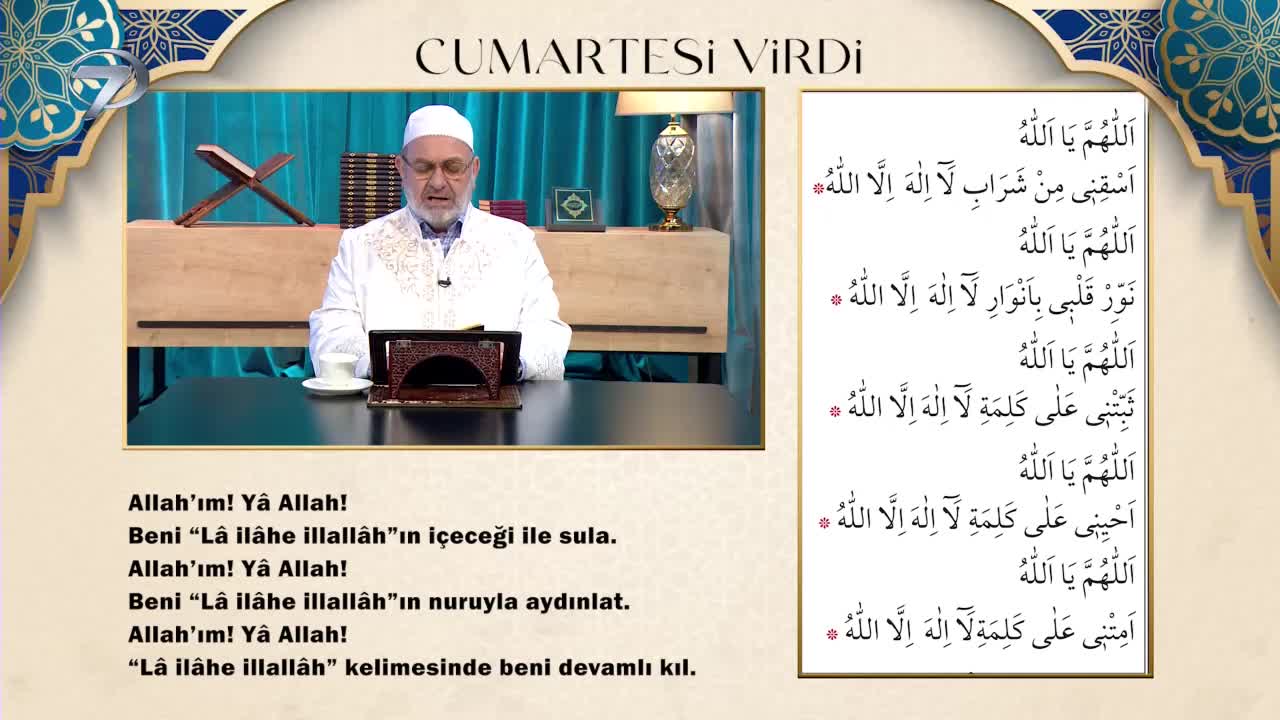 CUMARTESİ VİRDİ
7
اَللّٰهُمَّ يَا اَللّٰهُ
اَسْقِنٖى مِنْ شَرَابِ لَٓا اِلٰهَ اِلَّا اللّٰهُ
اَللّٰهُمَّ يَا اَللّٰهُ
نَوِّرْ قَلْبٖى بِاَنْوَارِ لَٓا اِلٰهَ اِلَّا اللّٰهُ
اَللّٰهُمَّ يَا اَللّٰهُ
ثَبِّتْنٖى عَلٰى كَلِمَةِ لَٓا اِلٰهَ اِلَّا اللّٰهُ
اَللّٰهُمَّ يَا اَللّٰهُ
اَحْيِنٖى عَلٰى كَلِمَةِ لَٓا اِلٰهَ اِلَّا اللّٰهُ
اَللّٰهُمَّ يَا اَللّٰهُ
اَمِتْنٖى عَلٰى كَلِمَةِ لَٓا اِلٰهَ اِلَّا اللّٰهُ
Allah’ım! Yâ Allah!
Beni “Lâ ilâhe illallâh”ın içeceği ile sula.
Allah’ım! Yâ Allah!
Beni “Lâ ilâhe illallâh”ın nuruyla aydınlat.
Allah’ım! Yâ Allah!
“Lâ ilâhe illallâh” kelimesinde beni devamlı kıl.